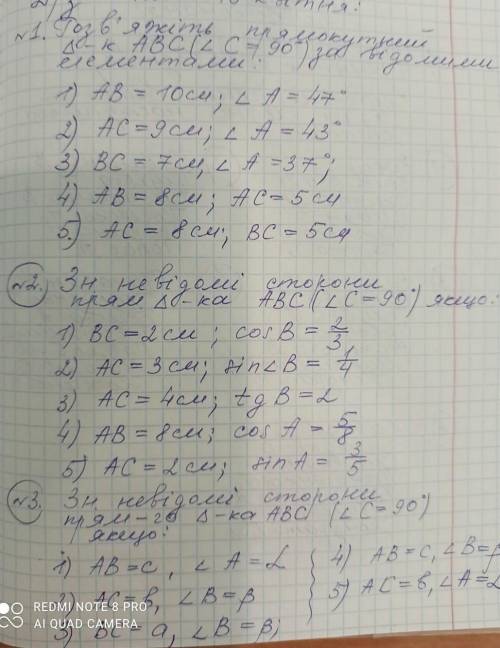 №1. Розв'яжіть прямокутний
Δ-к ABC (∠C=90°) за відомими
елементами:
1) AB = 10см; ∠A = 47°
2) AC = 9см; ∠A = 43°
3) BC = 7см, ∠A = 37°;
4) AB = 8см; AC = 5см
5) AC = 8см; BC = 5см
№2. Зн невідомі сторони
прям. Δ-ка ABC (∠C = 90°) якщо:
1) BC = 2см; cosB = 2/3
2) AC = 3см; sin∠B = 1/4
3) AC = 4см; tgB = 2
4) AB = 8см; cosA = 5/8
5) AC = 2см; sinA = 3/5
№3. Зн невідомі сторони
прям-го Δ-ка ABC (∠C = 90°)
якщо:
1) AB = c, ∠A = α
2) AC = b, ∠B = β
3) BC = a, ∠B = β;
4) AB = c, ∠B = β
5) AC = b, ∠A = α
REDMI NOTE 8 PRO
AI QUAD CAMERA